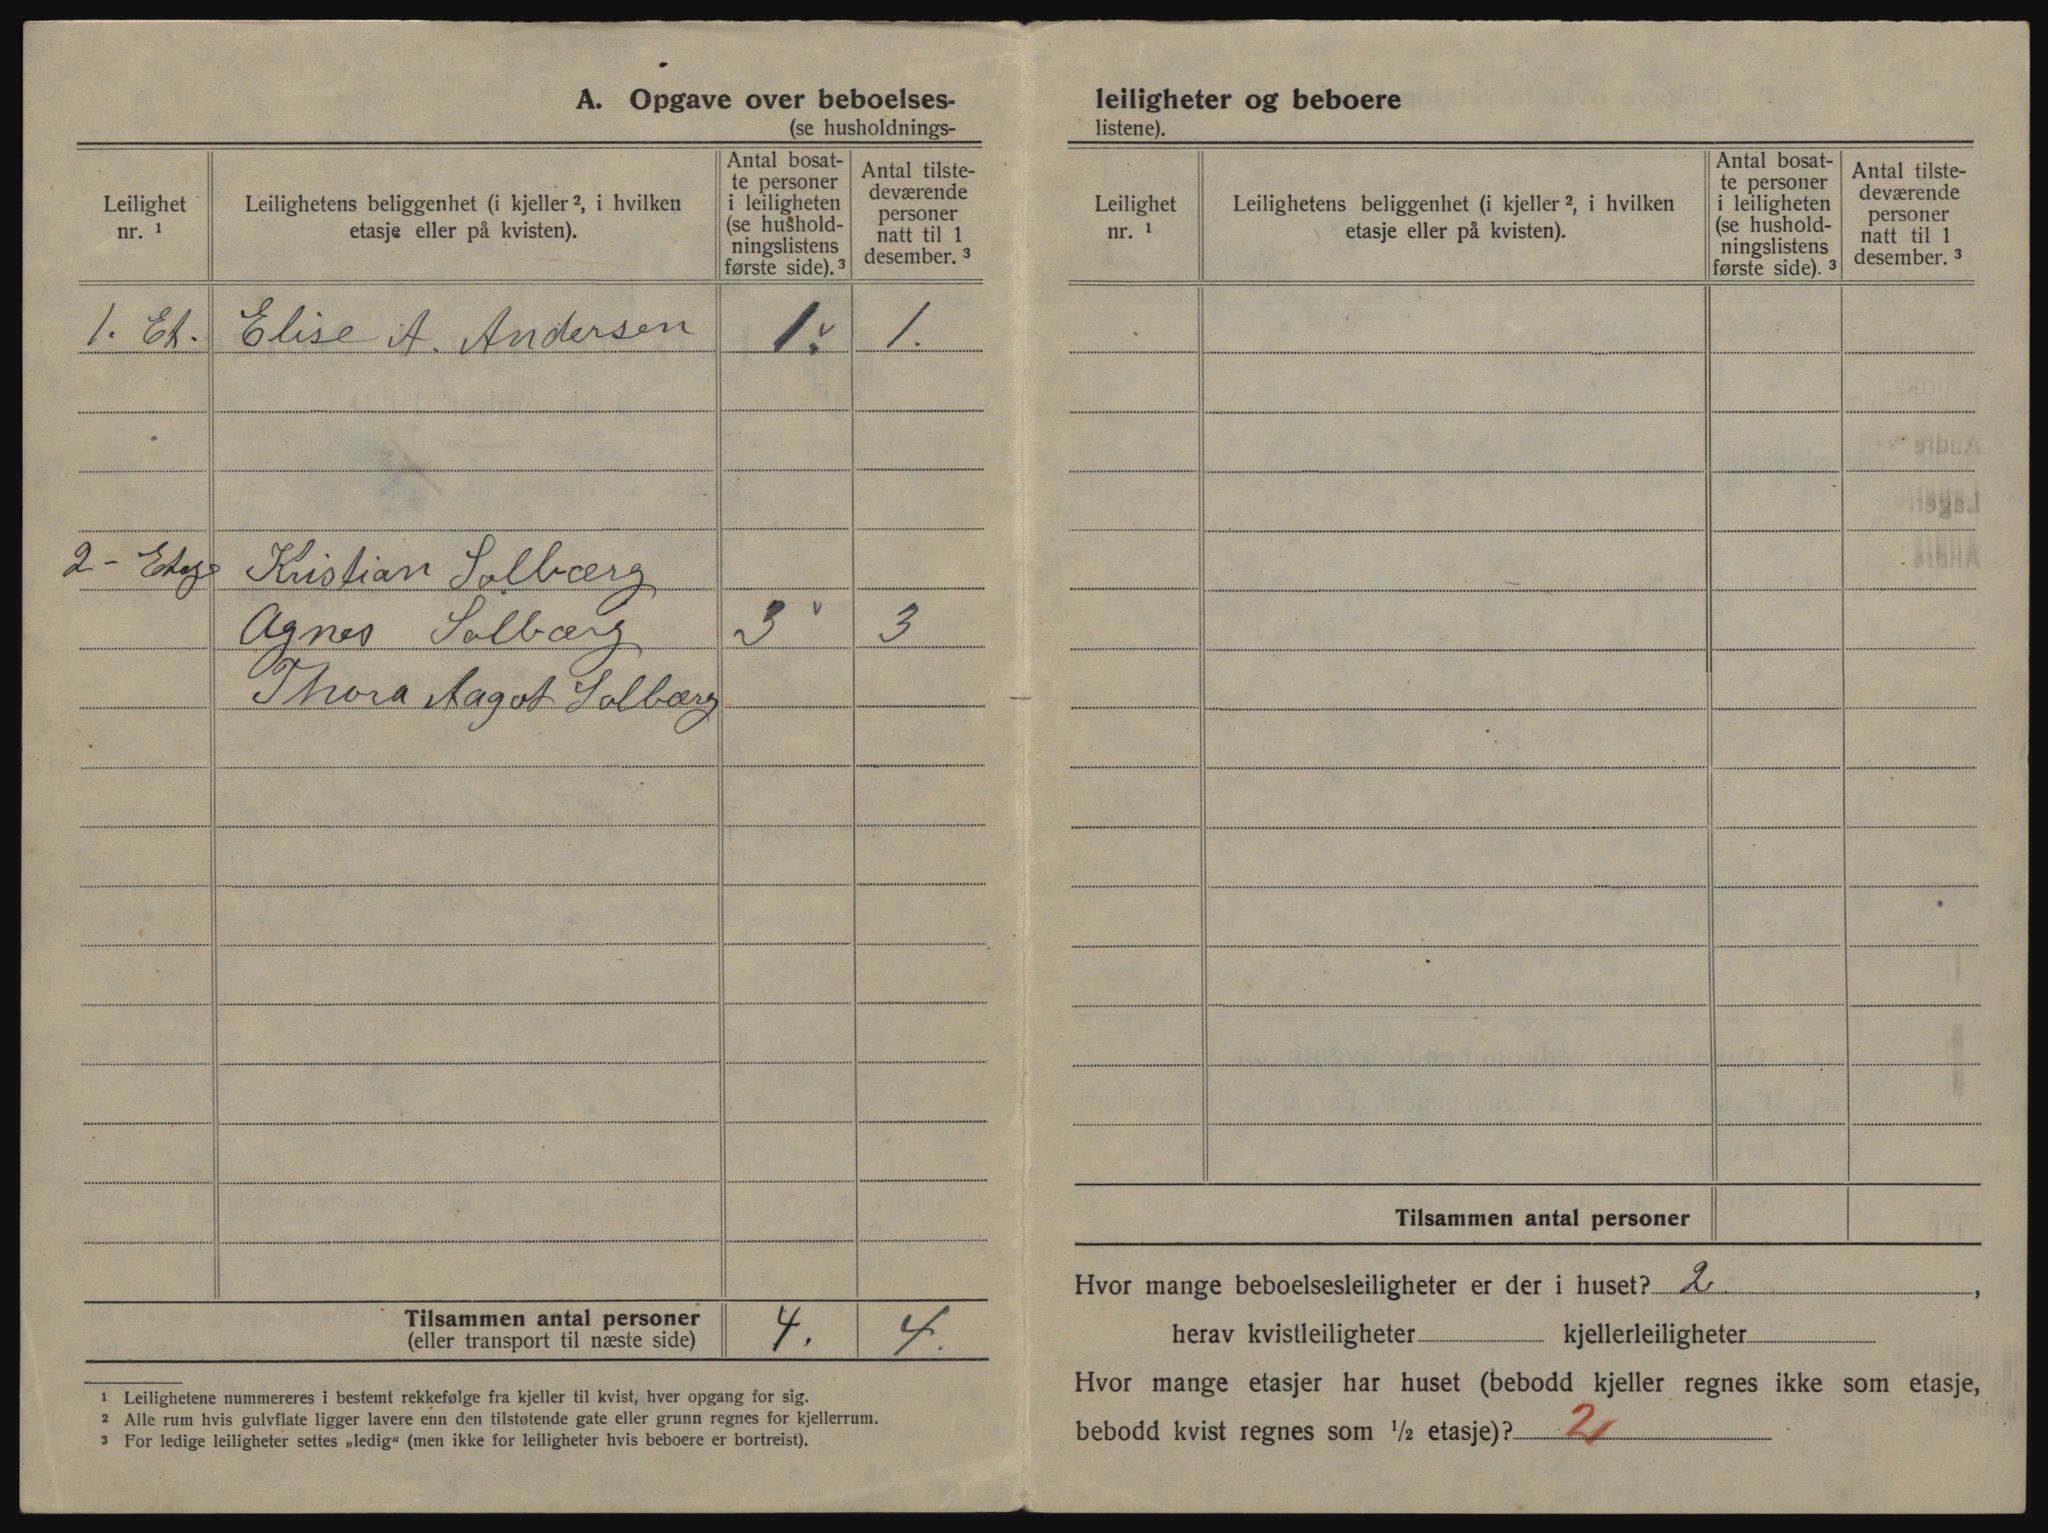 A. Opgave over beboelses-
(se husholdnings-
Leilighet nr. ¹
Leilighetens beliggenhet (i kjeller ², i hvilken etasje eller på kvisten).
Antal bosat-
te personer
i leiligheten
(se hushold-
ningslistens
første side). ³
Antal tilste-
deværende
personer
natt til 1
desember. ³
1. Et. Elise A. Andersen 1. 1.
2 - Etage Kristian Solbærg
Agnes Solbærg 3 3
Thora Aagot Solbærg
Tilsammen antal personer 4. 4.
(eller transport til næste side)
¹ Leilighetene nummereres i bestemt rekkefølge fra kjeller til kvist, hver opgang for sig.
² Alle rum hvis gulvflate ligger lavere enn den tilstøtende gate eller grunn regnes for kjellerrum.
³ For ledige leiligheter settes „ledig“ (men ikke for leiligheter hvis beboere er bortreist).
leiligheter og beboere
listene).
Leilighet nr. ¹
Leilighetens beliggenhet (i kjeller ², i hvilken etasje eller på kvisten).
Antal bosat-
te personer
i leiligheten
(se hushold-
ningslistens
første side). ³
Antal tilste-
deværende
personer
natt til 1
desember. ³
Tilsammen antal personer
Hvor mange beboelsesleiligheter er der i huset? 2. ,
herav kvistleiligheter kjellerleiligheter
Hvor mange etasjer har huset (bebodd kjeller regnes ikke som etasje,
bebodd kvist regnes som ½ etasje)? 2